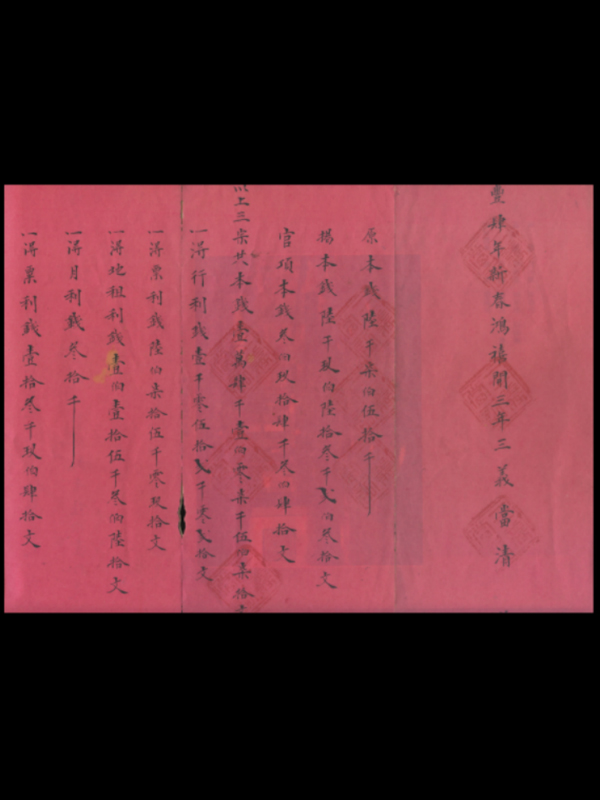 壹肆年新春鴻禧開三年三義當清
原本戓陸千柒伯伍拾千
揭本戓陸千玖伯陸拾叁千乂伯叁拾文
官項本戓叁伯玖拾肆千叁伯肆拾文
以上三宗共本戓壹萬肆千壹伯零柒千伍伯柒拾
一得行利戓壹千零伍拾乂千零乂拾文
一得票利戓陸伯柒拾伍千零玖拾文
一得地租利戓壹伯壹拾伍千叁伯陸拾文
一得月利戓叁拾千
一得票利戓壹拾叁千玖伯肆拾文